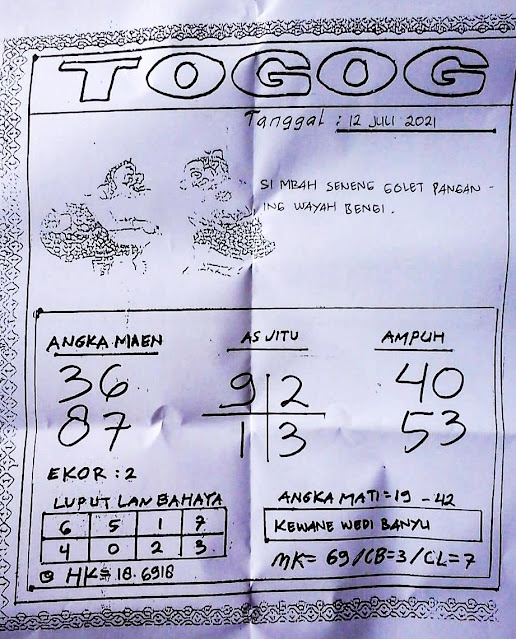 TOGOG
Tanggal : 12 JULI 2021
SI MBAH SENENG GOLET PANGAN -
ING WAYAH BENGI .
ANGKA MAEN
AS JITU
AMPUH
36
9 2
40
87
1 3
53
EKOR : 2
LUPUT LAN BAHAYA
ANGKA MATI = 19 - 42
6 5 1 7
KEWANE WEDI BANYU
4 0 2 3
MK= 69/CB=3/CL=7
HK= 18.6918